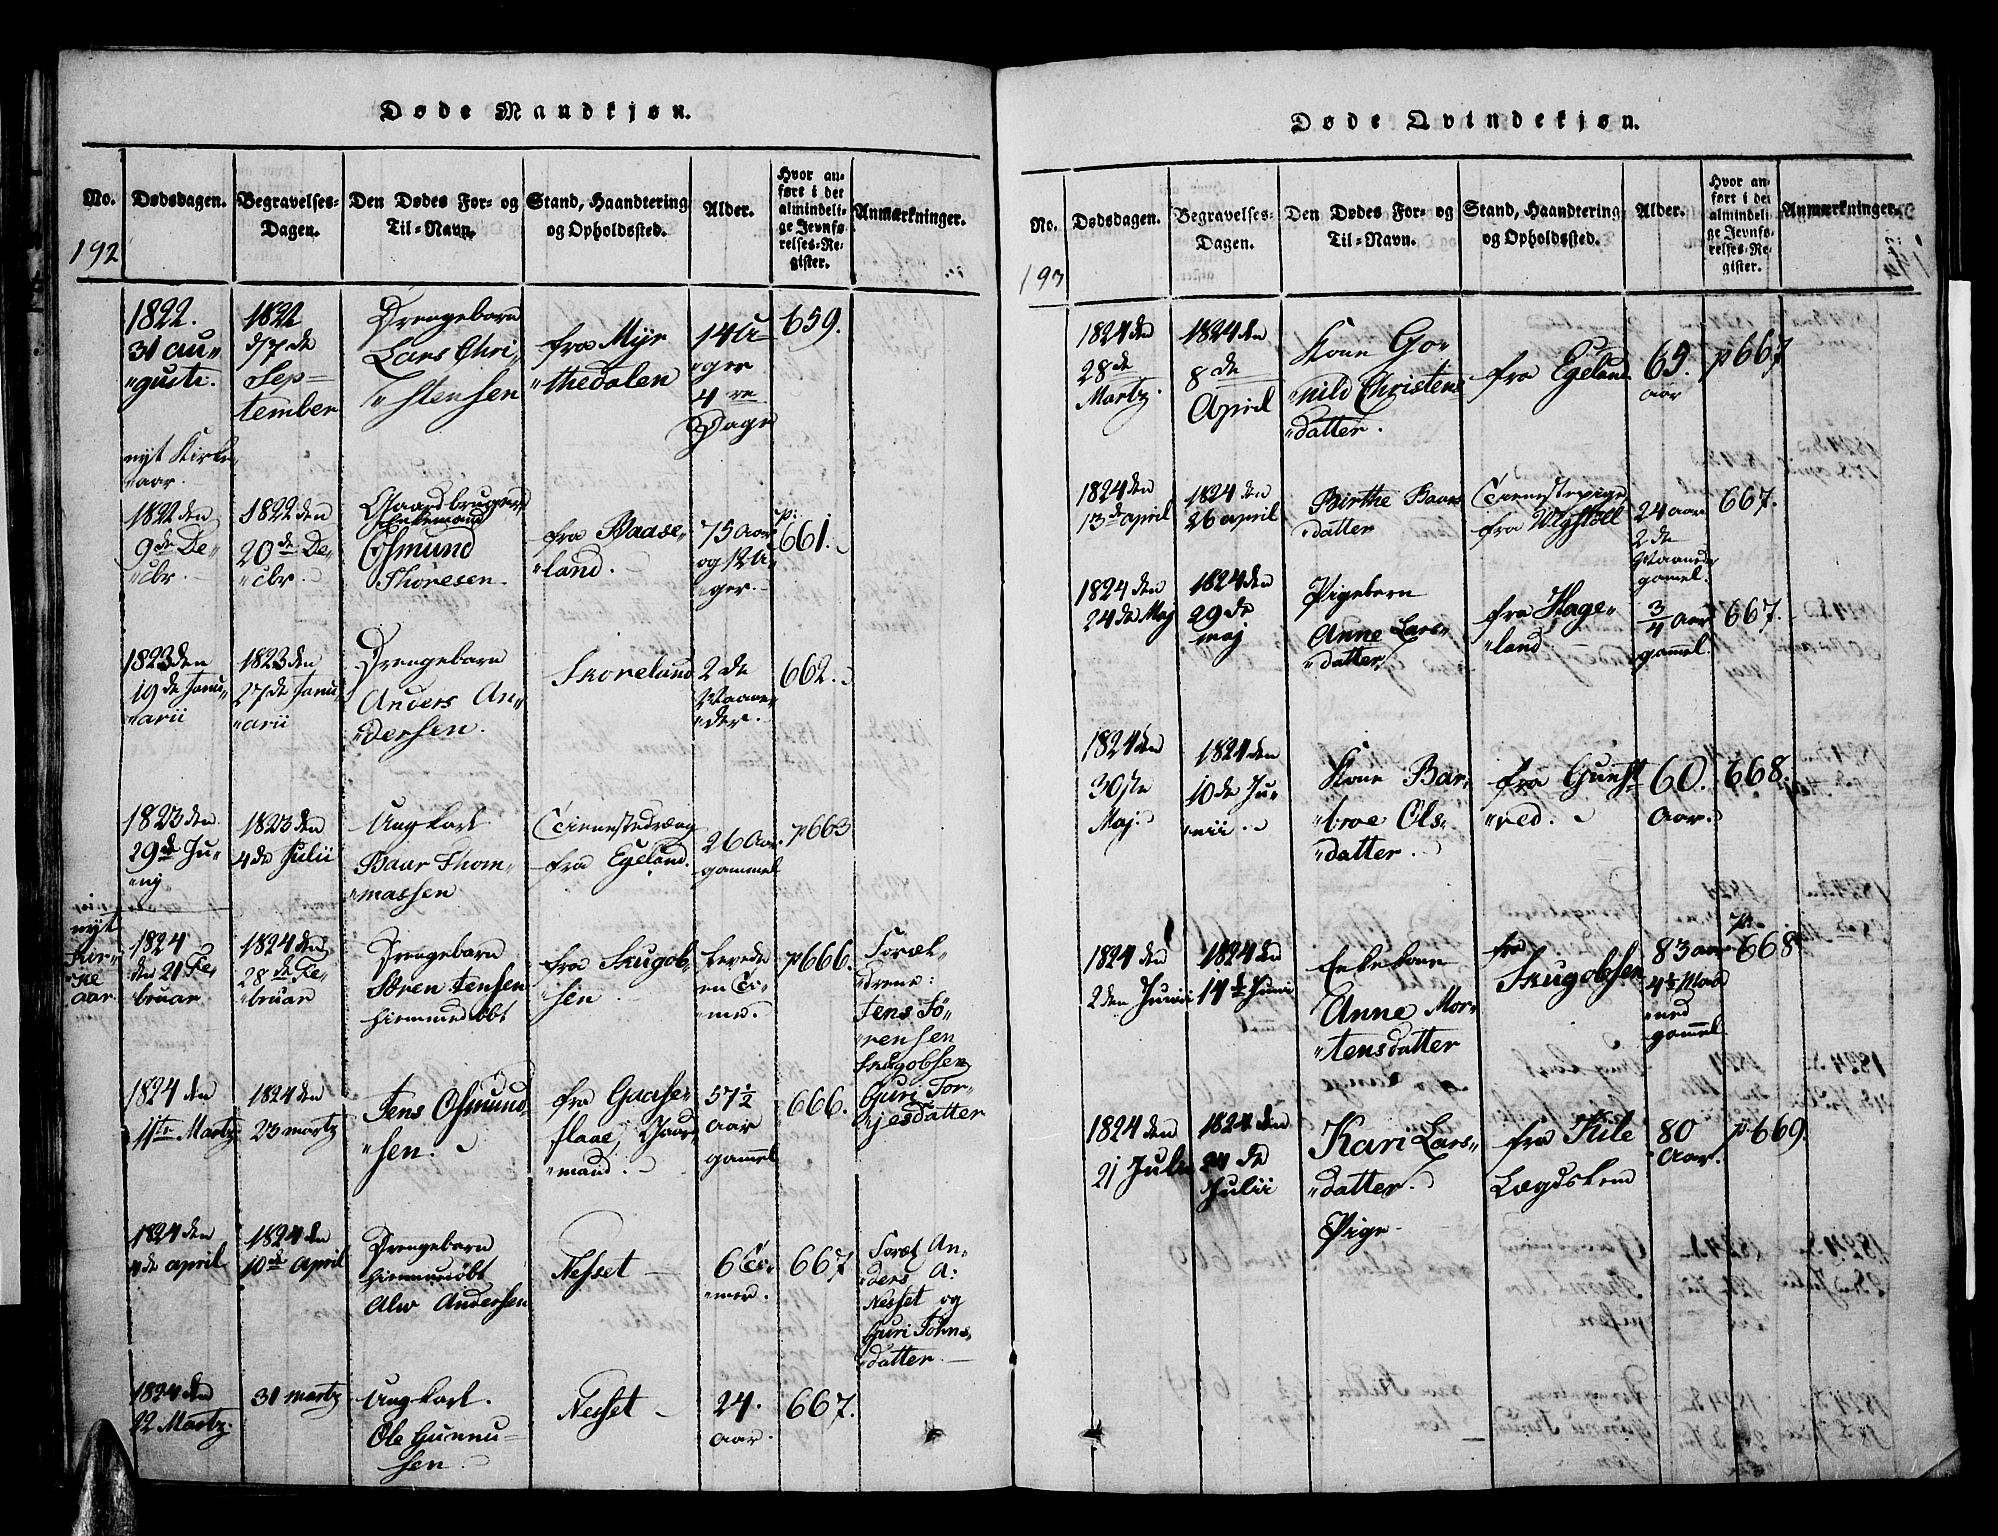 Døde Mandkjøn.
No. Dødsdagen. Begravelses-Dagen. Den Dødes For- og Til-Navn. Stand, Haandtering og Opholdssted. Alder. Hvor anført i det almindelige Jevnførelses-Register. Anmærkninger.
192
1822. 31 au-
"gusti.
1822
d/7 de
Sep-
tember
Drengebarn
Lars Chri-
"stensen
fra Myr
"thedalen
14 U-
"ger
4 re
Dage
659.
nyt Kirke
"aar.
1822 den
9de De-
"cbr.
1822 den
20de De-
"cbr.
Gaardbruger
Enkemand
Osmund
Thoresen
fra Baase-
"land.
75 Aar
og 12 U-
"ger.
p:
661.
1823 den
19 de Janu-
"arii
1823 den
27 de Janu-
"arii
Drengebarn
Anders An-
"dersen.
Skoreland
2 de
Maane-
"der.
662.
1823 den
29 de Ju-
"nj
1823 den
4 de Julii
Ungkarl
Baar Thom-
"massen
Tienestedræng
fra Egeland.
26 Aar.
gammel
p 663
nyt
Kir-
"ke
aar
1824
den 21 Fe-
bruar
1824 den
28 de Fe-
"bruar
Drengebarn
Søren Jensen
hiemmedøbt
fra Skugob-
"sen
levede
en Ti-
"me.
p 666.
Foræl-
"drene:
Jens Sø-
"rensen
Skugobsen
Guri Tor-
"jesdatter
1824 den
11te Martz
1824 den
23 martz
Jens Osmund-
"sen.
fra Gaase-
flaae, Gaar-
"mand.
57½
aar
gammel
666.
1824 den
4 de april
1824 den
10 de April
Drengebarn
hiemmedøbt
Alw Andersen
Nesset
6 Ti-
"mer.
667
Foræl An-
"ders A:
Nesset og
Guri Johns-
"datter.
1824 den
22 Martz.
31 martz
Ungkarl.
Ole Gunnu-
sen.
Nesset
24.
aar.
667.
Døde Qvindekjøn.
No. Dødsdagen. Begravelses-Dagen. Den Dødes For- og Til-Navn. Stand, Haandtering og Opholdssted. Alder. Hvor anført i det almindelige Jevnførelses-Register. Anmærkninger.
193
1824 den
28 de
Martz.
1824 den
8 de
April
Kone Go-
"nild Christens
"datter.
fra Egeland
69.
aar
p 667
1824 den
13 de april
1824 den
26 april
Birthe Baars
"datter
Tienestepige
fra
24 aar
2 de
Maaneder
gamel.
667.
1824 den
24 de Maj
1824 den
29 de
maj
Pigebarn
Anne Lars-
"datter
fra Hage-
"land
¾ aar
gammel
667.
1824 den
30 ste
Maj.
1824 den
10 de Ju-
"nii.
Kone Bar-
"broe Ols-
"datter.
fra Gunst-
"ved.
60.
Aar.
668.
1824 den
2 den Junii
1824 den
14 de Junii
Enkekone
Anne Mor-
"tensdatter
fra
Skugobsen
83 aar
4½ Maa
"ned
gammel
p.
668
1824 den
21 Julii
1824 den
24 de
Julii
Kari Lars-
"datter.
Pige
fra Kile
Lægdslem
80
Aar.
p 669.